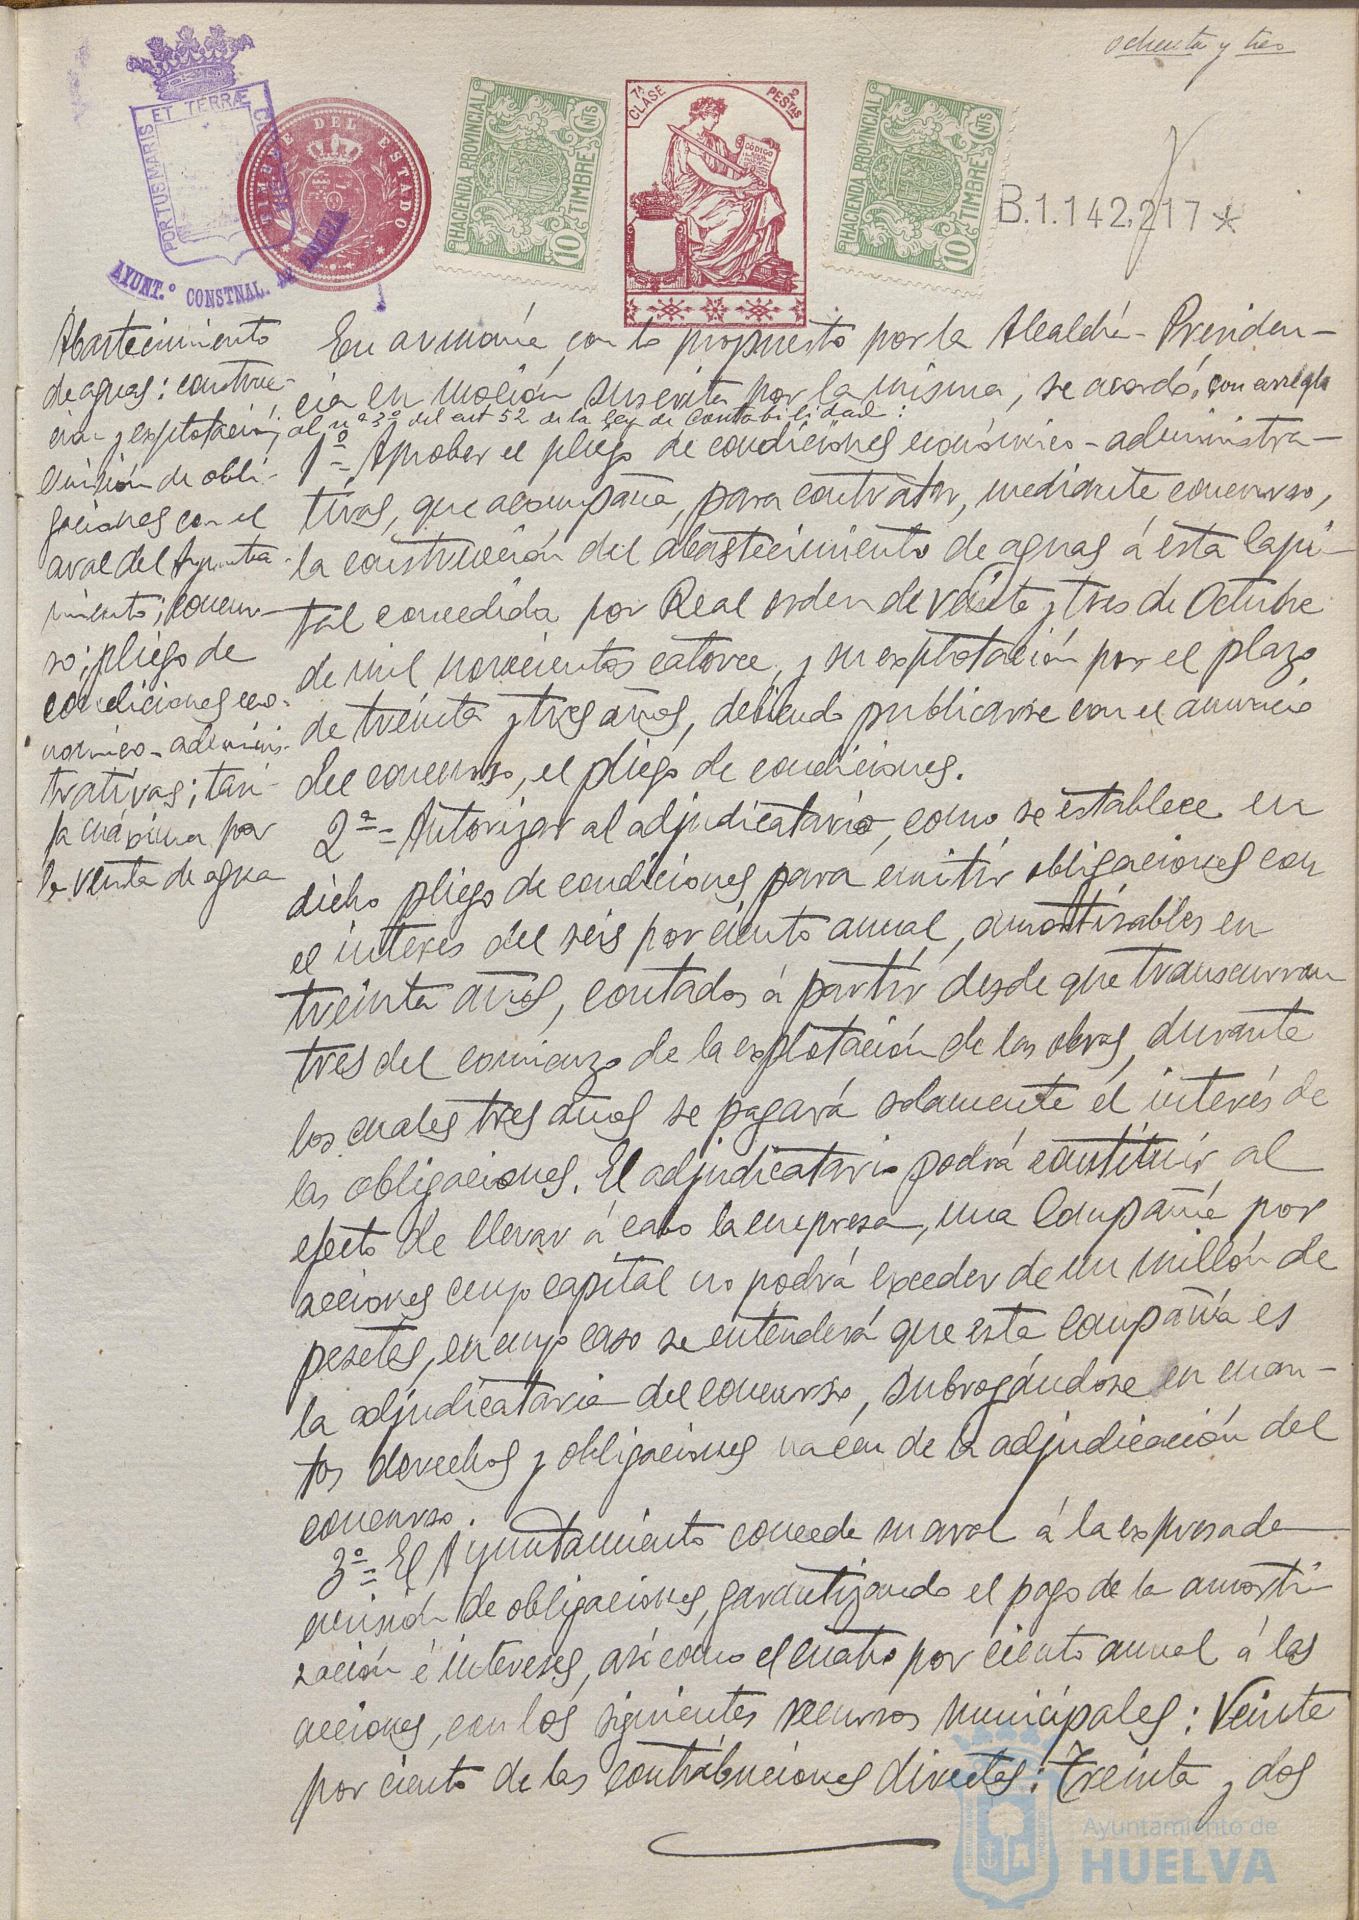 ochenta y tres
PORTUS MARIS ET TERRÆ CUSTODIA
AYUNT.º CONSTNAL. DE HUELVA
TIMBRE DEL ESTADO
HACIENDA PROVINCIAL
10 CNTS
TIMBRE 10
7ª CLASE
2 PESTAS
CÓDIGO
HACIENDA PROVINCIAL
10 CNTS
TIMBRE 10
B.1.142,217 *
Abastecimiento
de aguas: construc-
ción y explotación;
emisión de obli-
gaciones con el
aval del Ayunta-
miento; concur-
so; pliego de
condiciones eco-
nómico-adminis-
trativas; tari-
fa máxima por
la venta de agua
En armonía con lo propuesto por la Alcaldía-Presiden-
cia en moción suscrita por la misma, se acordó, con arreglo
al nº 3º del art 52 de la Ley de Contabilidad:
1º = Aprobar el pliego de condiciones económico-administra-
tivas, que acompaña, para contratar, mediante concurso,
la construcción del abastecimiento de aguas á esta Capi-
tal concedida por Real orden de veinte y tres de Octubre
de mil novecientos catorce, y su explotación por el plazo
de treinta y tres años, debiendo publicarse con el anuncio
del concurso, el pliego de condiciones.
2º = Autorizar al adjudicatario, como se establece en
dicho pliego de condiciones, para emitir obligaciones con
el interés del seis por ciento anual, amortizables en
treinta años, contados á partir desde que transcurran
tres del comienzo de la explotación de las obras, durante
los cuales tres años se pagará solamente el interés de
las obligaciones. El adjudicatario podrá constituir al
efecto de llevar á cabo la empresa, una Compañía por
acciones cuyo capital no podrá exceder de un millón de
pesetas, en cuyo caso se entenderá que esta Compañía es
la adjudicataria del concurso, subrogándose en cuan-
tos derechos y obligaciones nacen de la adjudicación del
concurso.
3º = El Ayuntamiento concede su aval á la expresada
emisión de obligaciones, garantizando el pago de la amorti-
zación é intereses, así como el cuatro por ciento anual á las
acciones, con los siguientes recursos municipales: Veinte
por ciento de las contribuciones directas: Treinta y dos
Ayuntamiento de
HUELVA